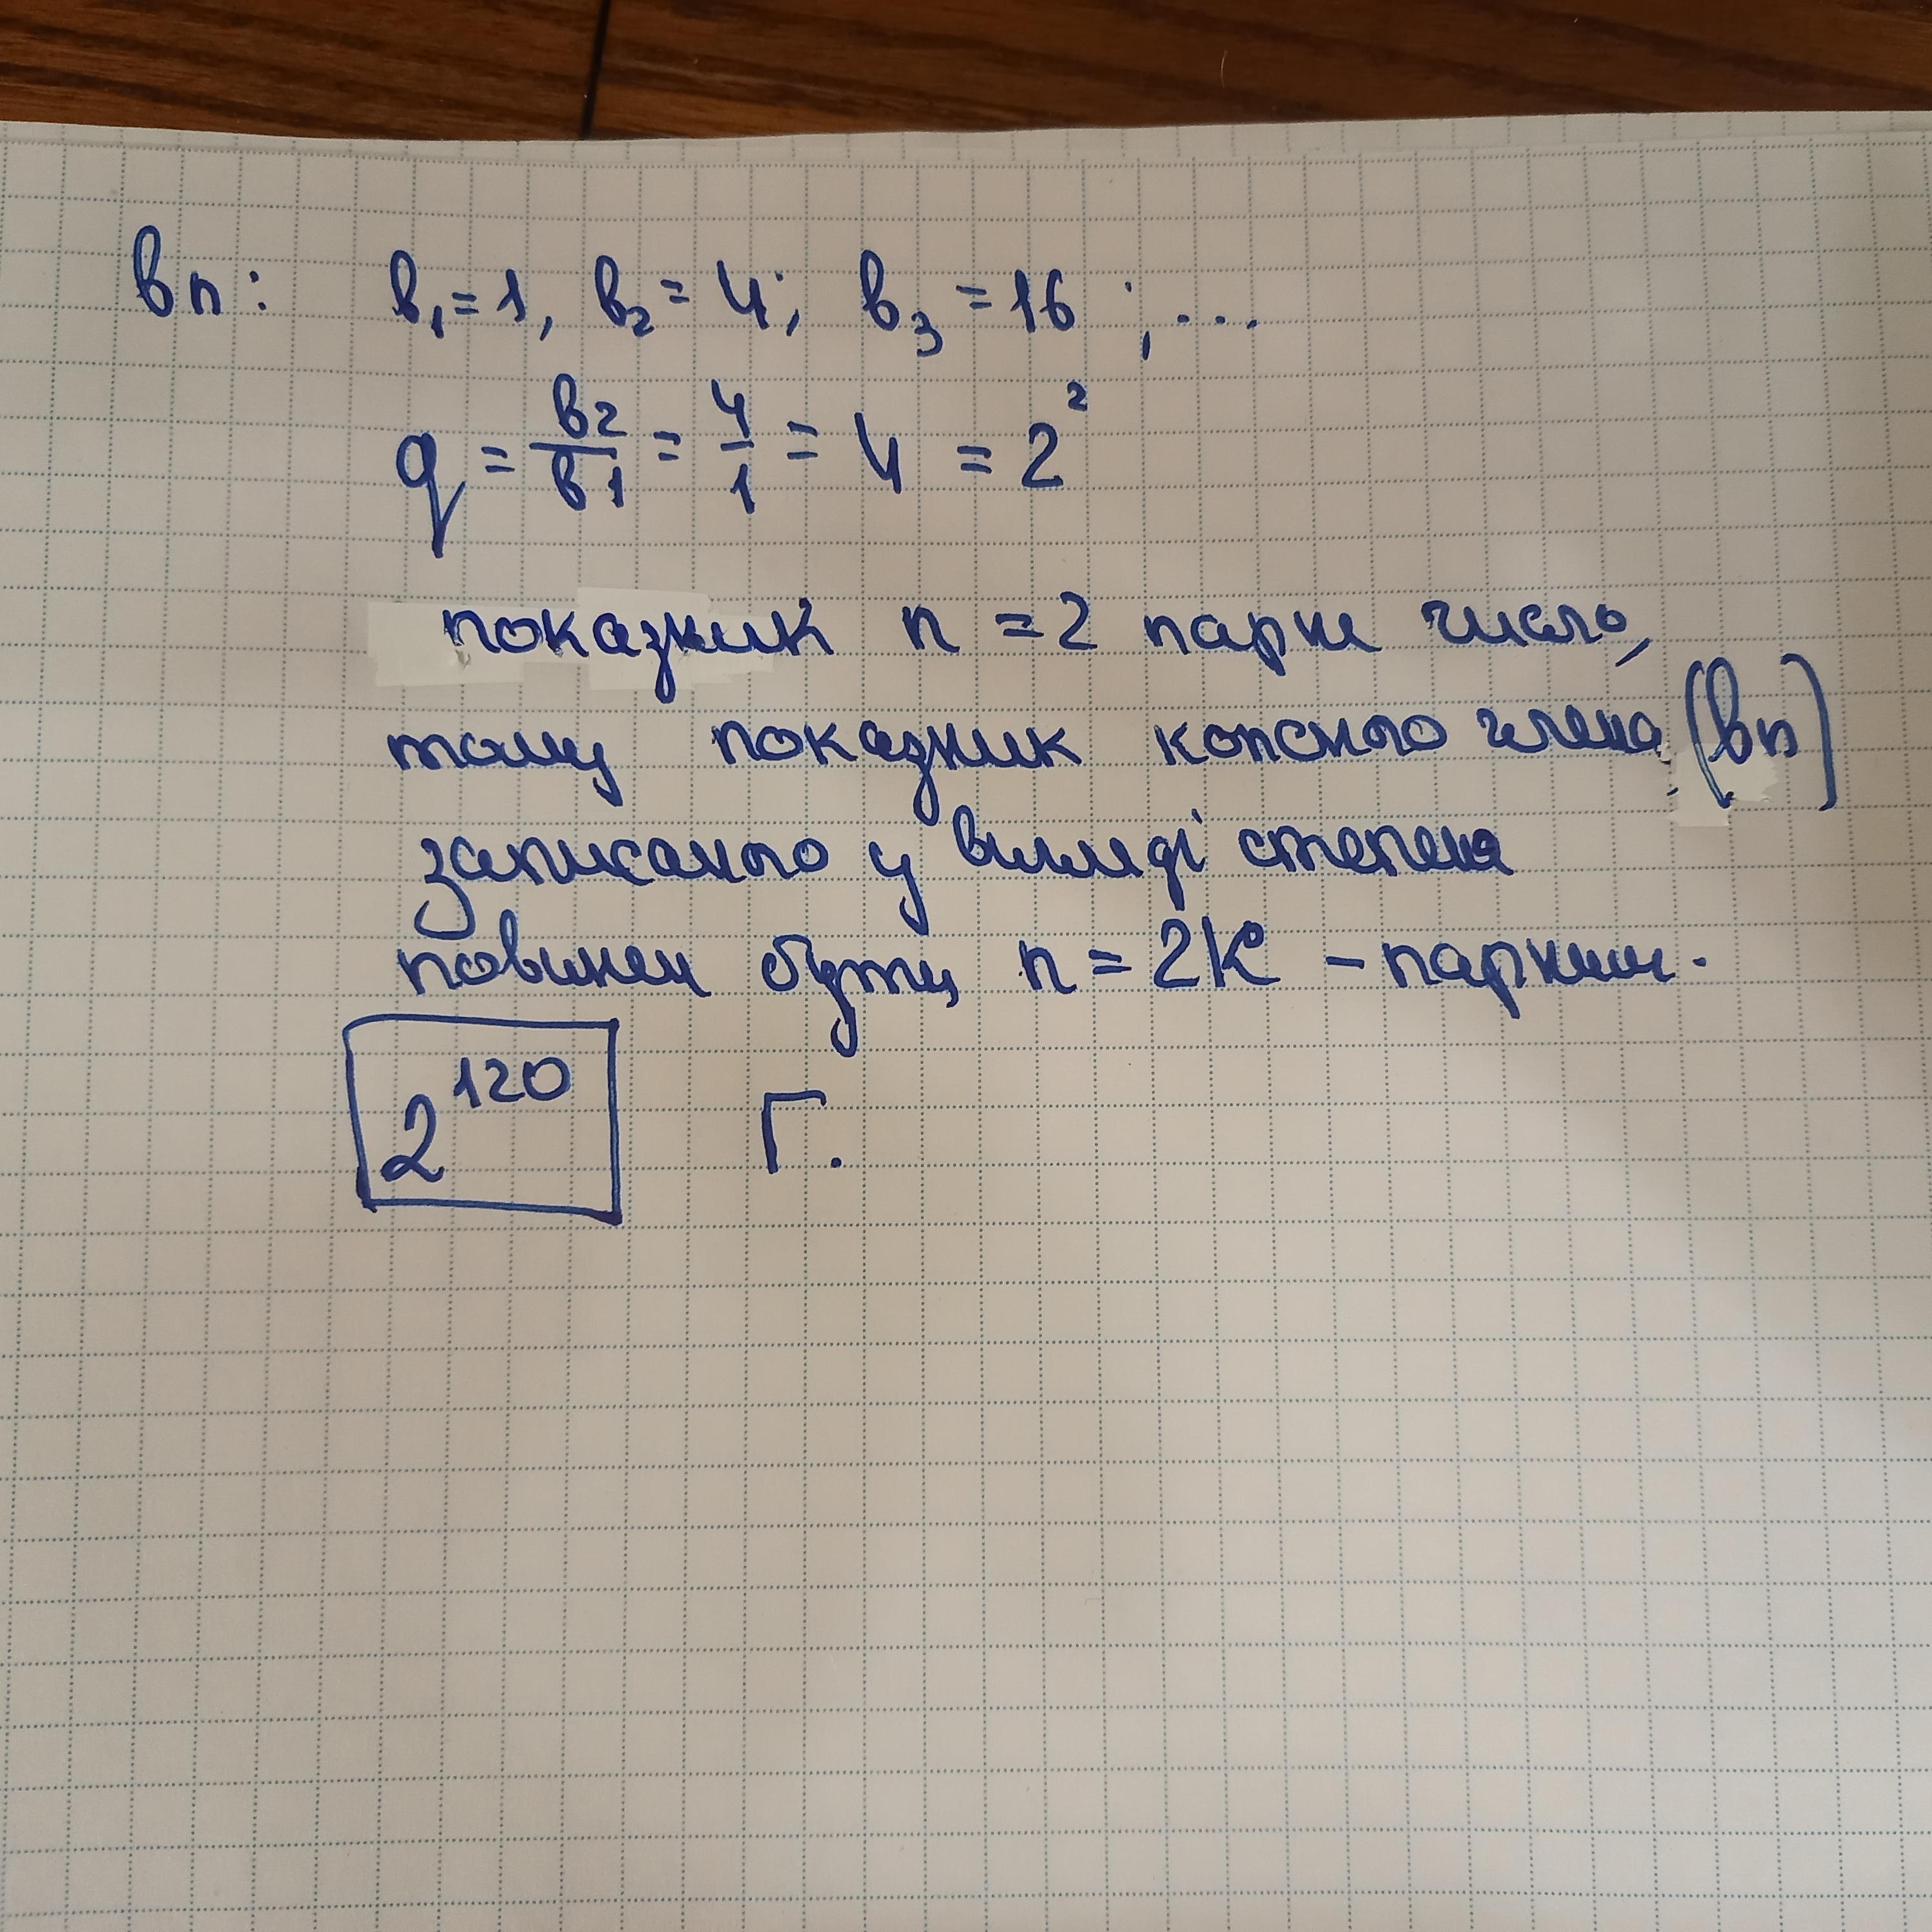 bn: b₁=1, b₂=4; b₃=16;...
q = b2/b1 = 4/1 = 4 = 2²
показник n=2 парне число,
тому показник кожного члена (bn)
записаного у вигляді степеня
повинен бути n=2k – парним.
2¹²⁰ Г.